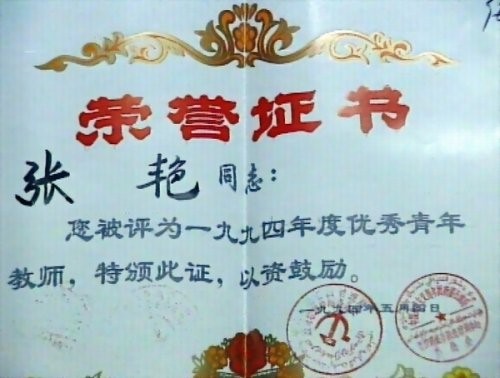 荣誉证书
张 艳 同志：
您被评为一九九四年度优秀青年
教师，特颁此证，以资鼓励。
一九九四年五月四日